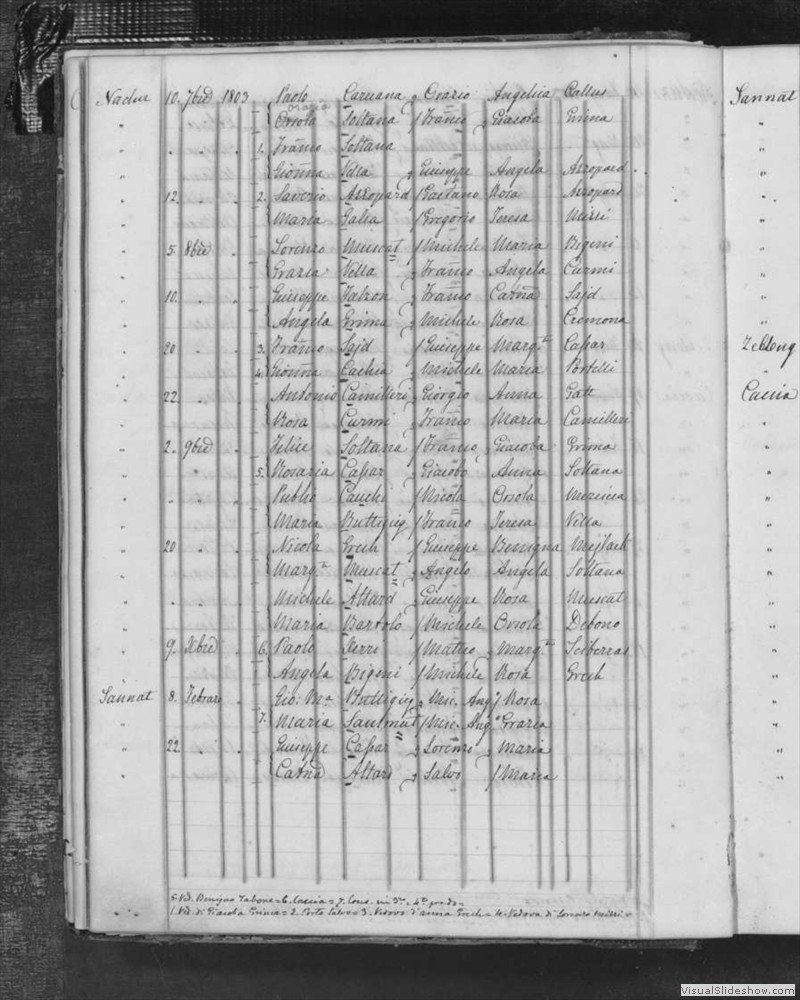 Nadur 10. 7bre 1803 Paolo Caruana Orazio Angelica Callus Sannat
Orazia
Orsola Soltana Franco Giacoba Grima
1. Franco Soltana
Gioanna Vella Giuseppe Angela Azzopard
12. 2. Saverio Azzopard Gaetano Rosa Azzopard
Maria Galea Gregorio Teresa Mizzi
5. 8bre Lorenzo Muscat Michele Maria Bigeni
Grazia Vella Franco Angela Curmi
10. Giuseppe Falzon Franco Catna Sajd
Angela Grima Michele Rosa Cremona
20 3. Franco Sajd Giuseppe Margta Caspar Zebbug
4. Gioanna Cachia Michele Maria Portelli
22. Antonio Camilleri Giorgio Anna Gatt Caccia
Rosa Curmi Franco Maria Camilleri
2. 9bre Felice Soltana Franco Giacoba Grima
5. Rosaria Caspar Giacobo Anna Soltana
Publio Cauchi Nicola Orsola
Maria Buttigieg Franco Teresa Vella
20 Nicola Grech Giuseppe Benigna Mejlach
Margta Muscat Angelo Angela Soltana
Michele Attard Giuseppe Rosa Muscat
Maria Bartolo Michele Orsola Debono
9. Xbre 6. Paolo Xerri Matteo Margta Sciberras
Angela Bigeni Michele Rosa Grech
Sannat 8. Febraro Gio. Ma Buttigieg Mic. Ang. Rosa
7. Maria Sautmut Mic. Ango Grazia
22. Giuseppe Caspar Lorenzo Maria
Catna Attard Salvo Maria
5. Ved. Benigno Tabone = 6. Caccia = 7. Cons. in 3o e 4o grado =
1. Ved. di Giacoba Grima = 2. Porto Salvo = 3. Vedovo d'Anna Grech = 4. Vedova di Lorenzo Mizzi =
VisualSlideshow.com